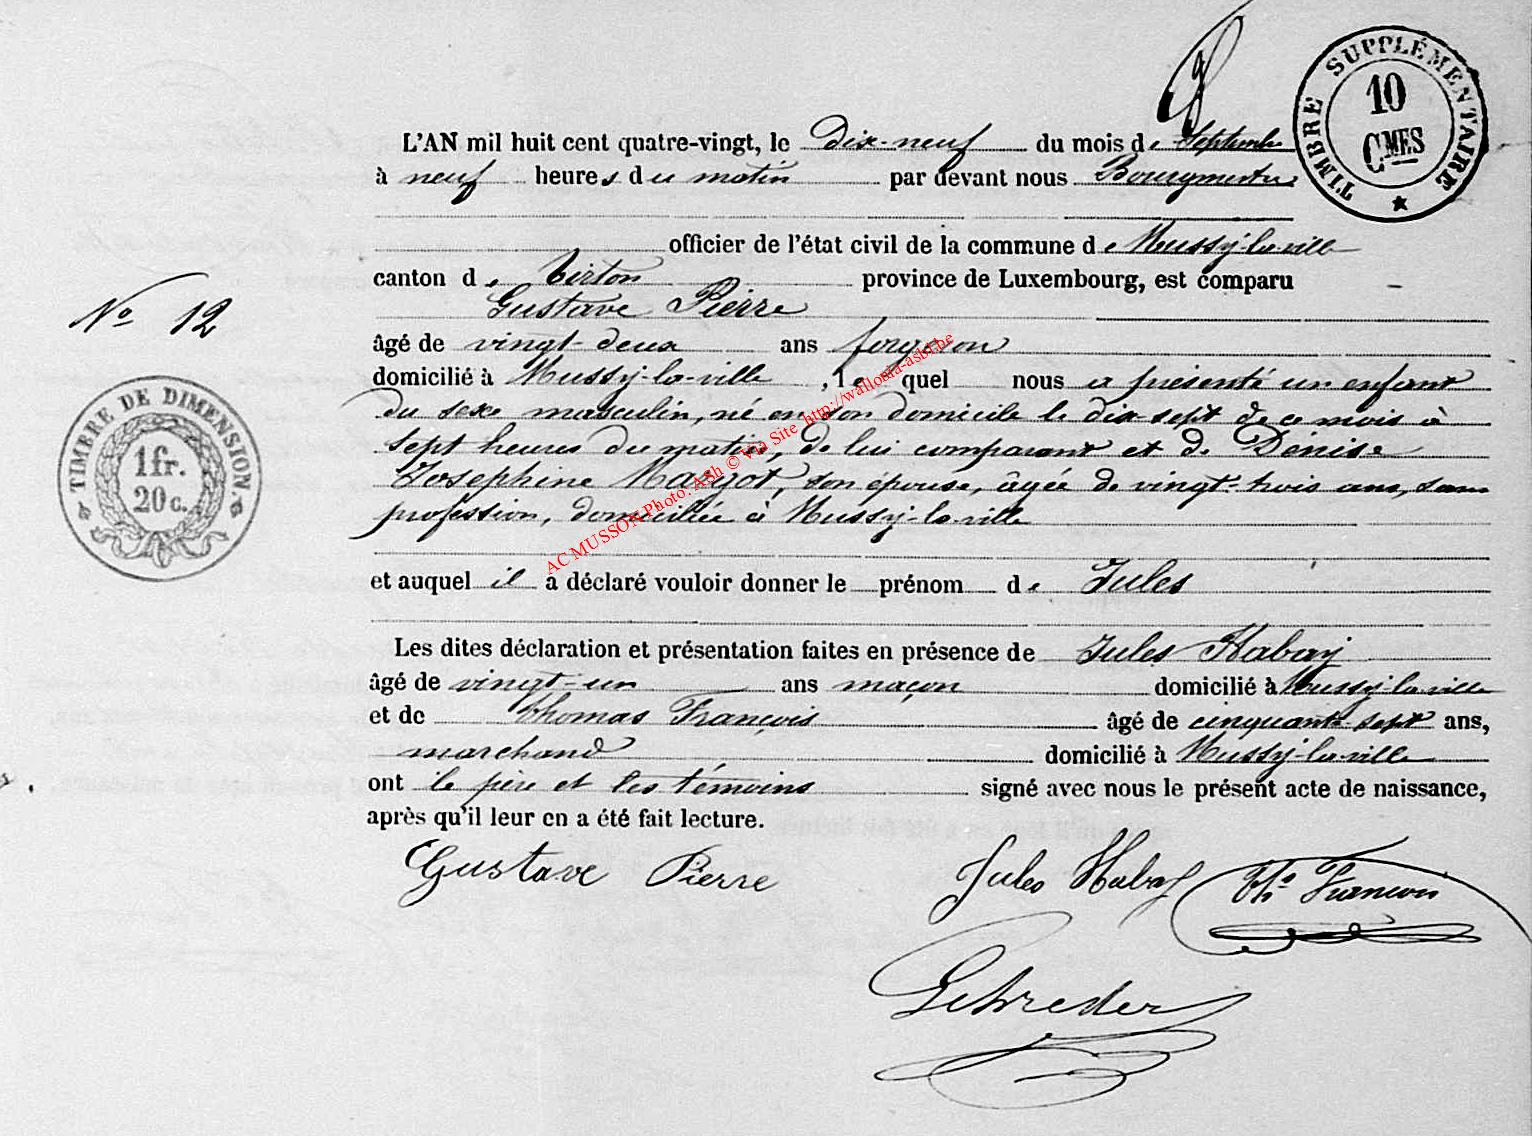 TIMBRE SUPPLÉMENTAIRE
10
CMES
L'AN mil huit cent quatre-vingt, le Dix-neuf du mois de Septembre
à neuf heures du matin par devant nous Bourgmestre
officier de l'état civil de la commune de Mussy-la-ville
canton de Virton province de Luxembourg, est comparu
Gustave Pierre
âgé de vingt-deux ans forgeron
domicilié à Mussy-la-ville, lequel nous a présenté un enfant
du sexe masculin, né en son domicile le dix-sept de ce mois à
sept heures du matin, de lui comparant et de Dénise
Josephine Margot, son épouse, âgée de vingt-trois ans, sans
profession, domiciliée à Mussy-la-ville
et auquel il a déclaré vouloir donner le prénom de Jules
Les dites déclaration et présentation faites en présence de Jules Habay
âgé de vingt-un ans maçon domicilié à Mussy-la-ville
et de Thomas François âgé de cinquante-sept ans,
marchand domicilié à Mussy-la-ville
ont le père et les témoins signé avec nous le présent acte de naissance,
après qu'il leur en a été fait lecture.
Gustave Pierre Jules Habay Th. François
Schreder
No 12
TIMBRE DE DIMENSION.
1 fr.
20 c.
AC MUSSON Photo. ASh © Via Site http://wallonia-asbl.be